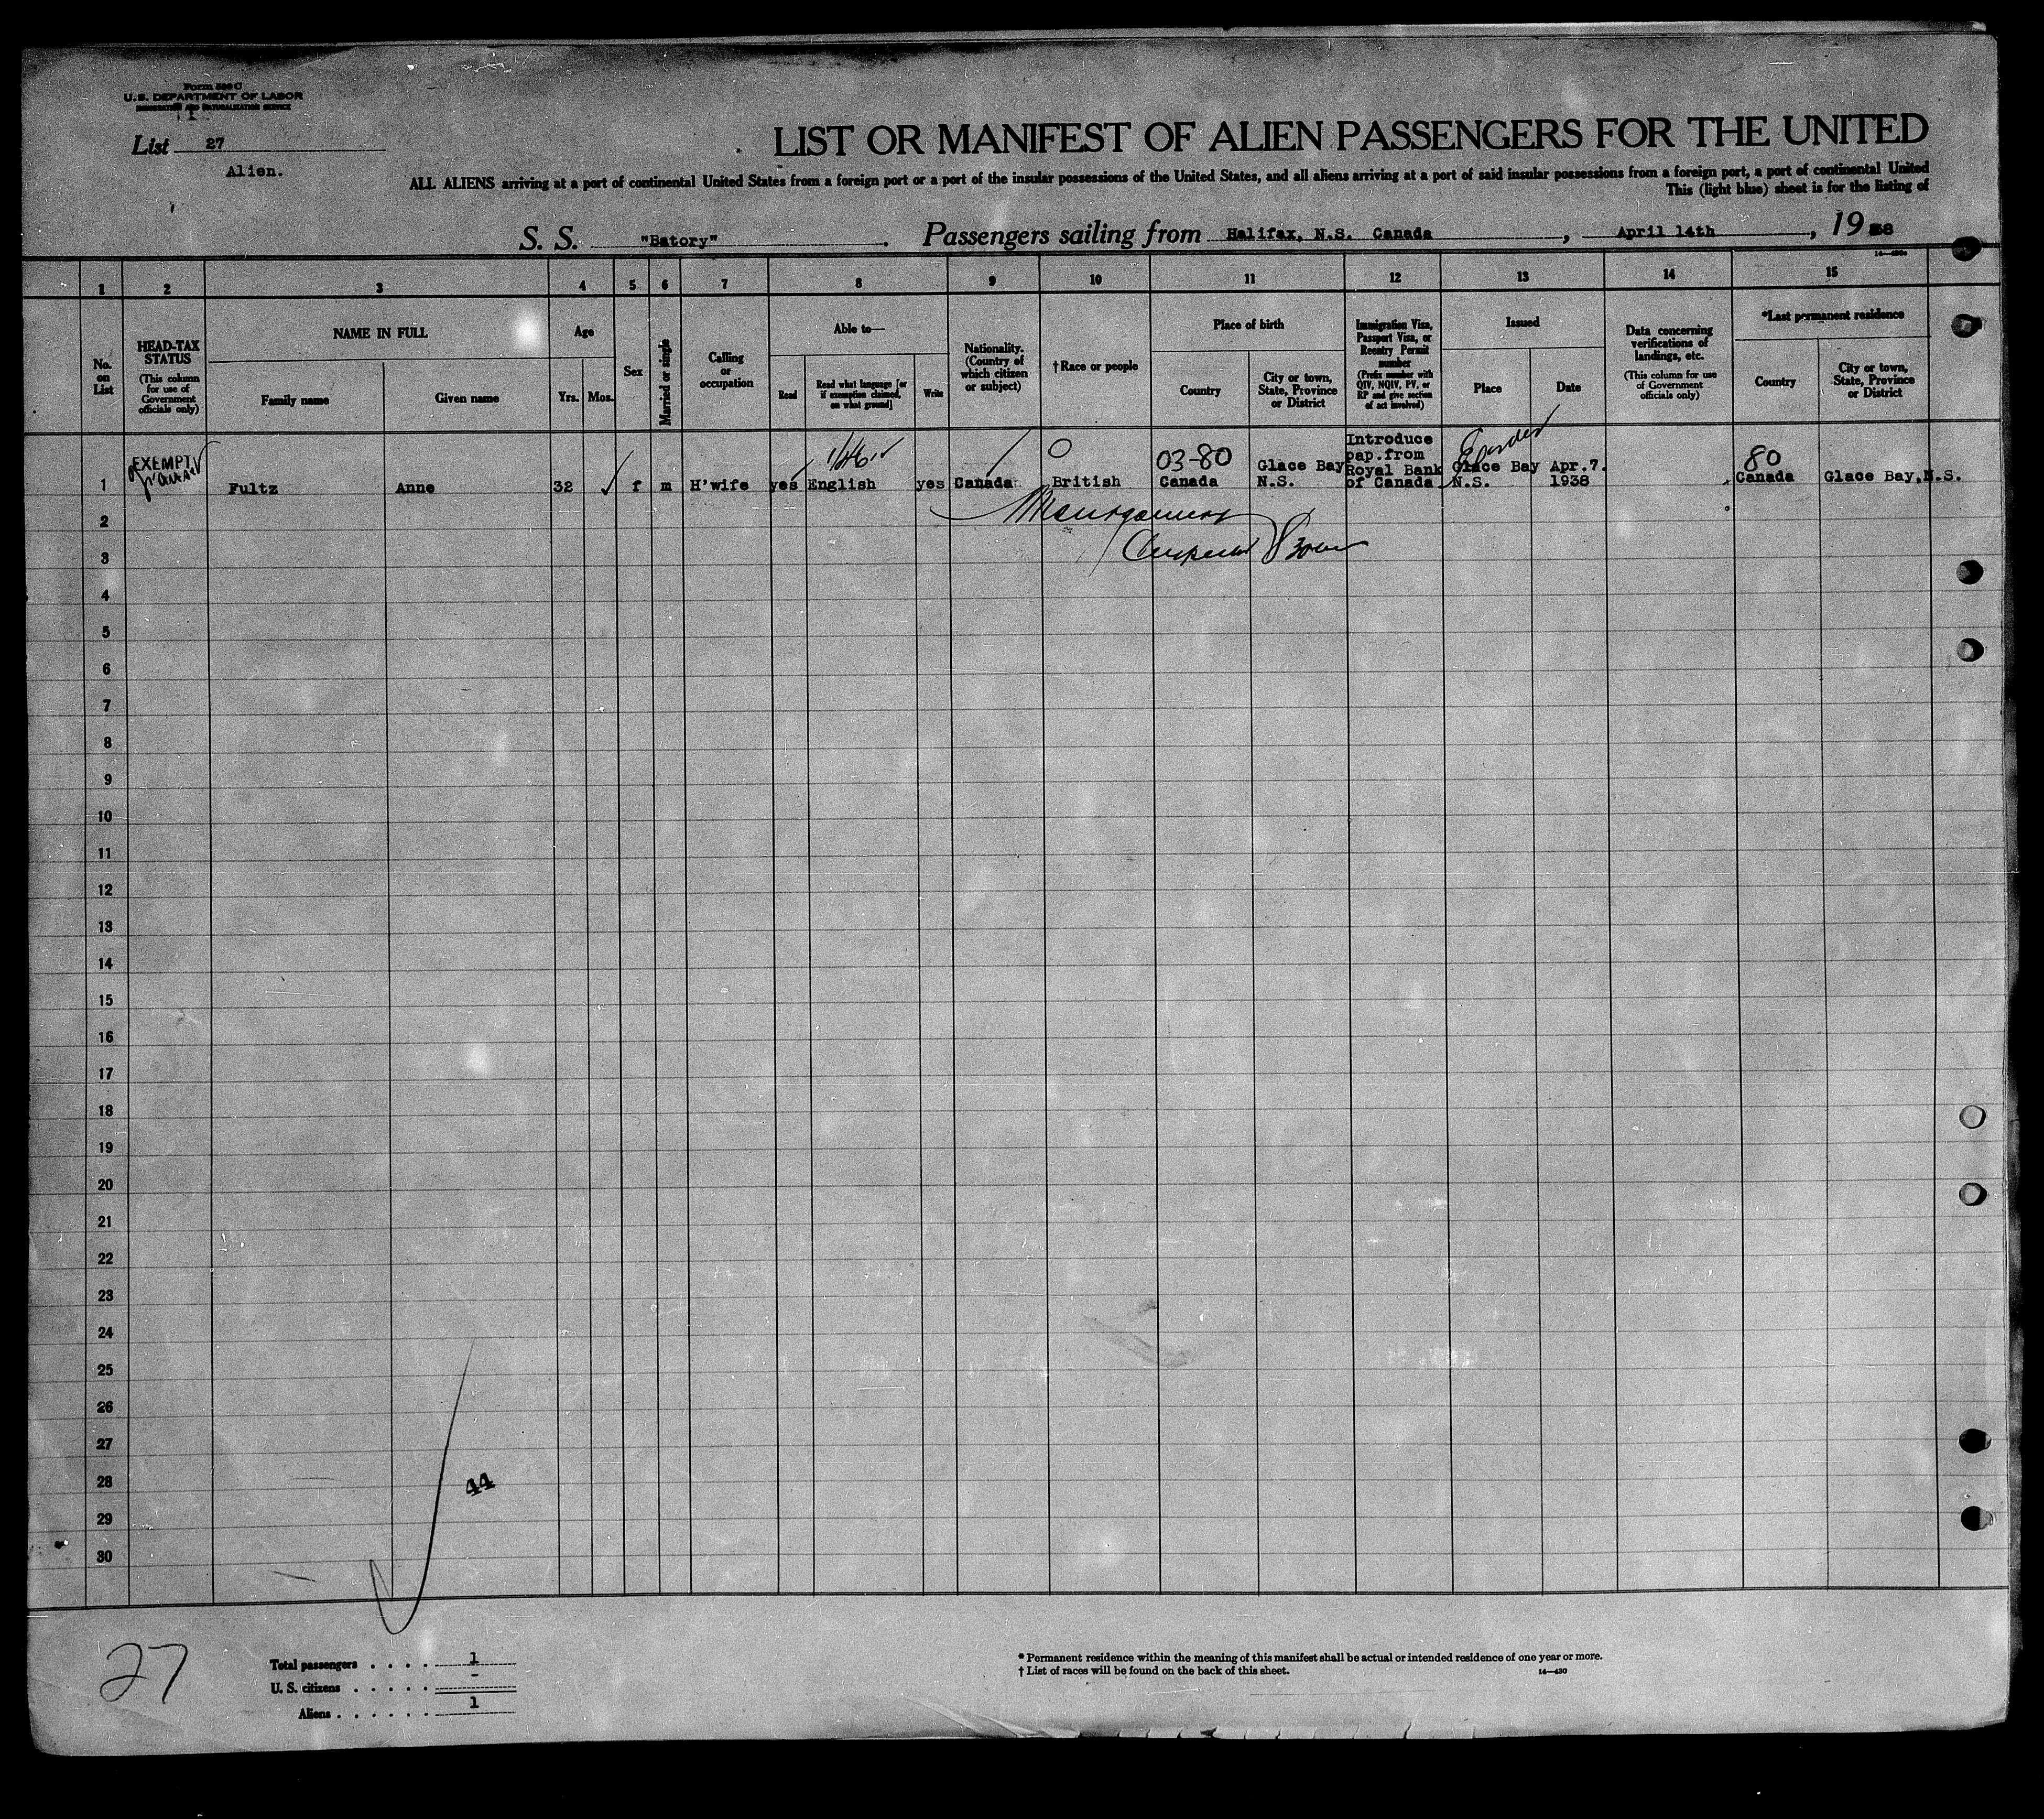 Form 500 C
U.S. DEPARTMENT OF LABOR
IMMIGRATION AND NATURALIZATION SERVICE
List 27
Alien.
LIST OR MANIFEST OF ALIEN PASSENGERS FOR THE UNITED
ALL ALIENS arriving at a port of continental United States from a foreign port or a port of the insular possessions of the United States, and all aliens arriving at a port of said insular possessions from a foreign port, a port of continental United
This (light blue) sheet is for the listing of
S. S. "Batory". Passengers sailing from Halifax, N.S. Canada, April 14th, 1938
1 2 3 4 5 6 7 8 9 10 11 12 13 14 15
No. on List
HEAD-TAX STATUS
(This column for use of Government officials only)
NAME IN FULL
Family name
Given name
Age
Yrs. Mos.
Sex
Married or single
Calling or occupation
Able to—
Read
Read what language [or if exemption claimed, on what ground]
Write
Nationality. (Country of which citizen or subject)
†Race or people
Place of birth
Country
City or town, State, Province or District
Immigration Visa, Passport Visa, or Reentry Permit number
(Prefix number with QIV, NQIV, PV, or RP and give section of act involved)
Issued
Place
Date
Data concerning verifications of landings, etc.
(This column for use of Government officials only)
*Last permanent residence
Country
City or town, State, Province or District
EXEMPT
03-80
80
1 Fultz Anne 32 f m H'wife yes English yes Canada British Canada Glace Bay N.S. Introduce pap.from Royal Bank of Canada Glace Bay N.S. Apr.7. 1938 Canada Glace Bay, N.S.
2
3
4
5
6
7
8
9
10
11
12
13
14
15
16
17
18
19
20
21
22
23
24
25
26
27
28
29
30
44
27
Total passengers . . . . 1
U. S. citizens . . . . . -
Aliens . . . . . . 1
* Permanent residence within the meaning of this manifest shall be actual or intended residence of one year or more.
† List of races will be found on the back of this sheet. 14—430